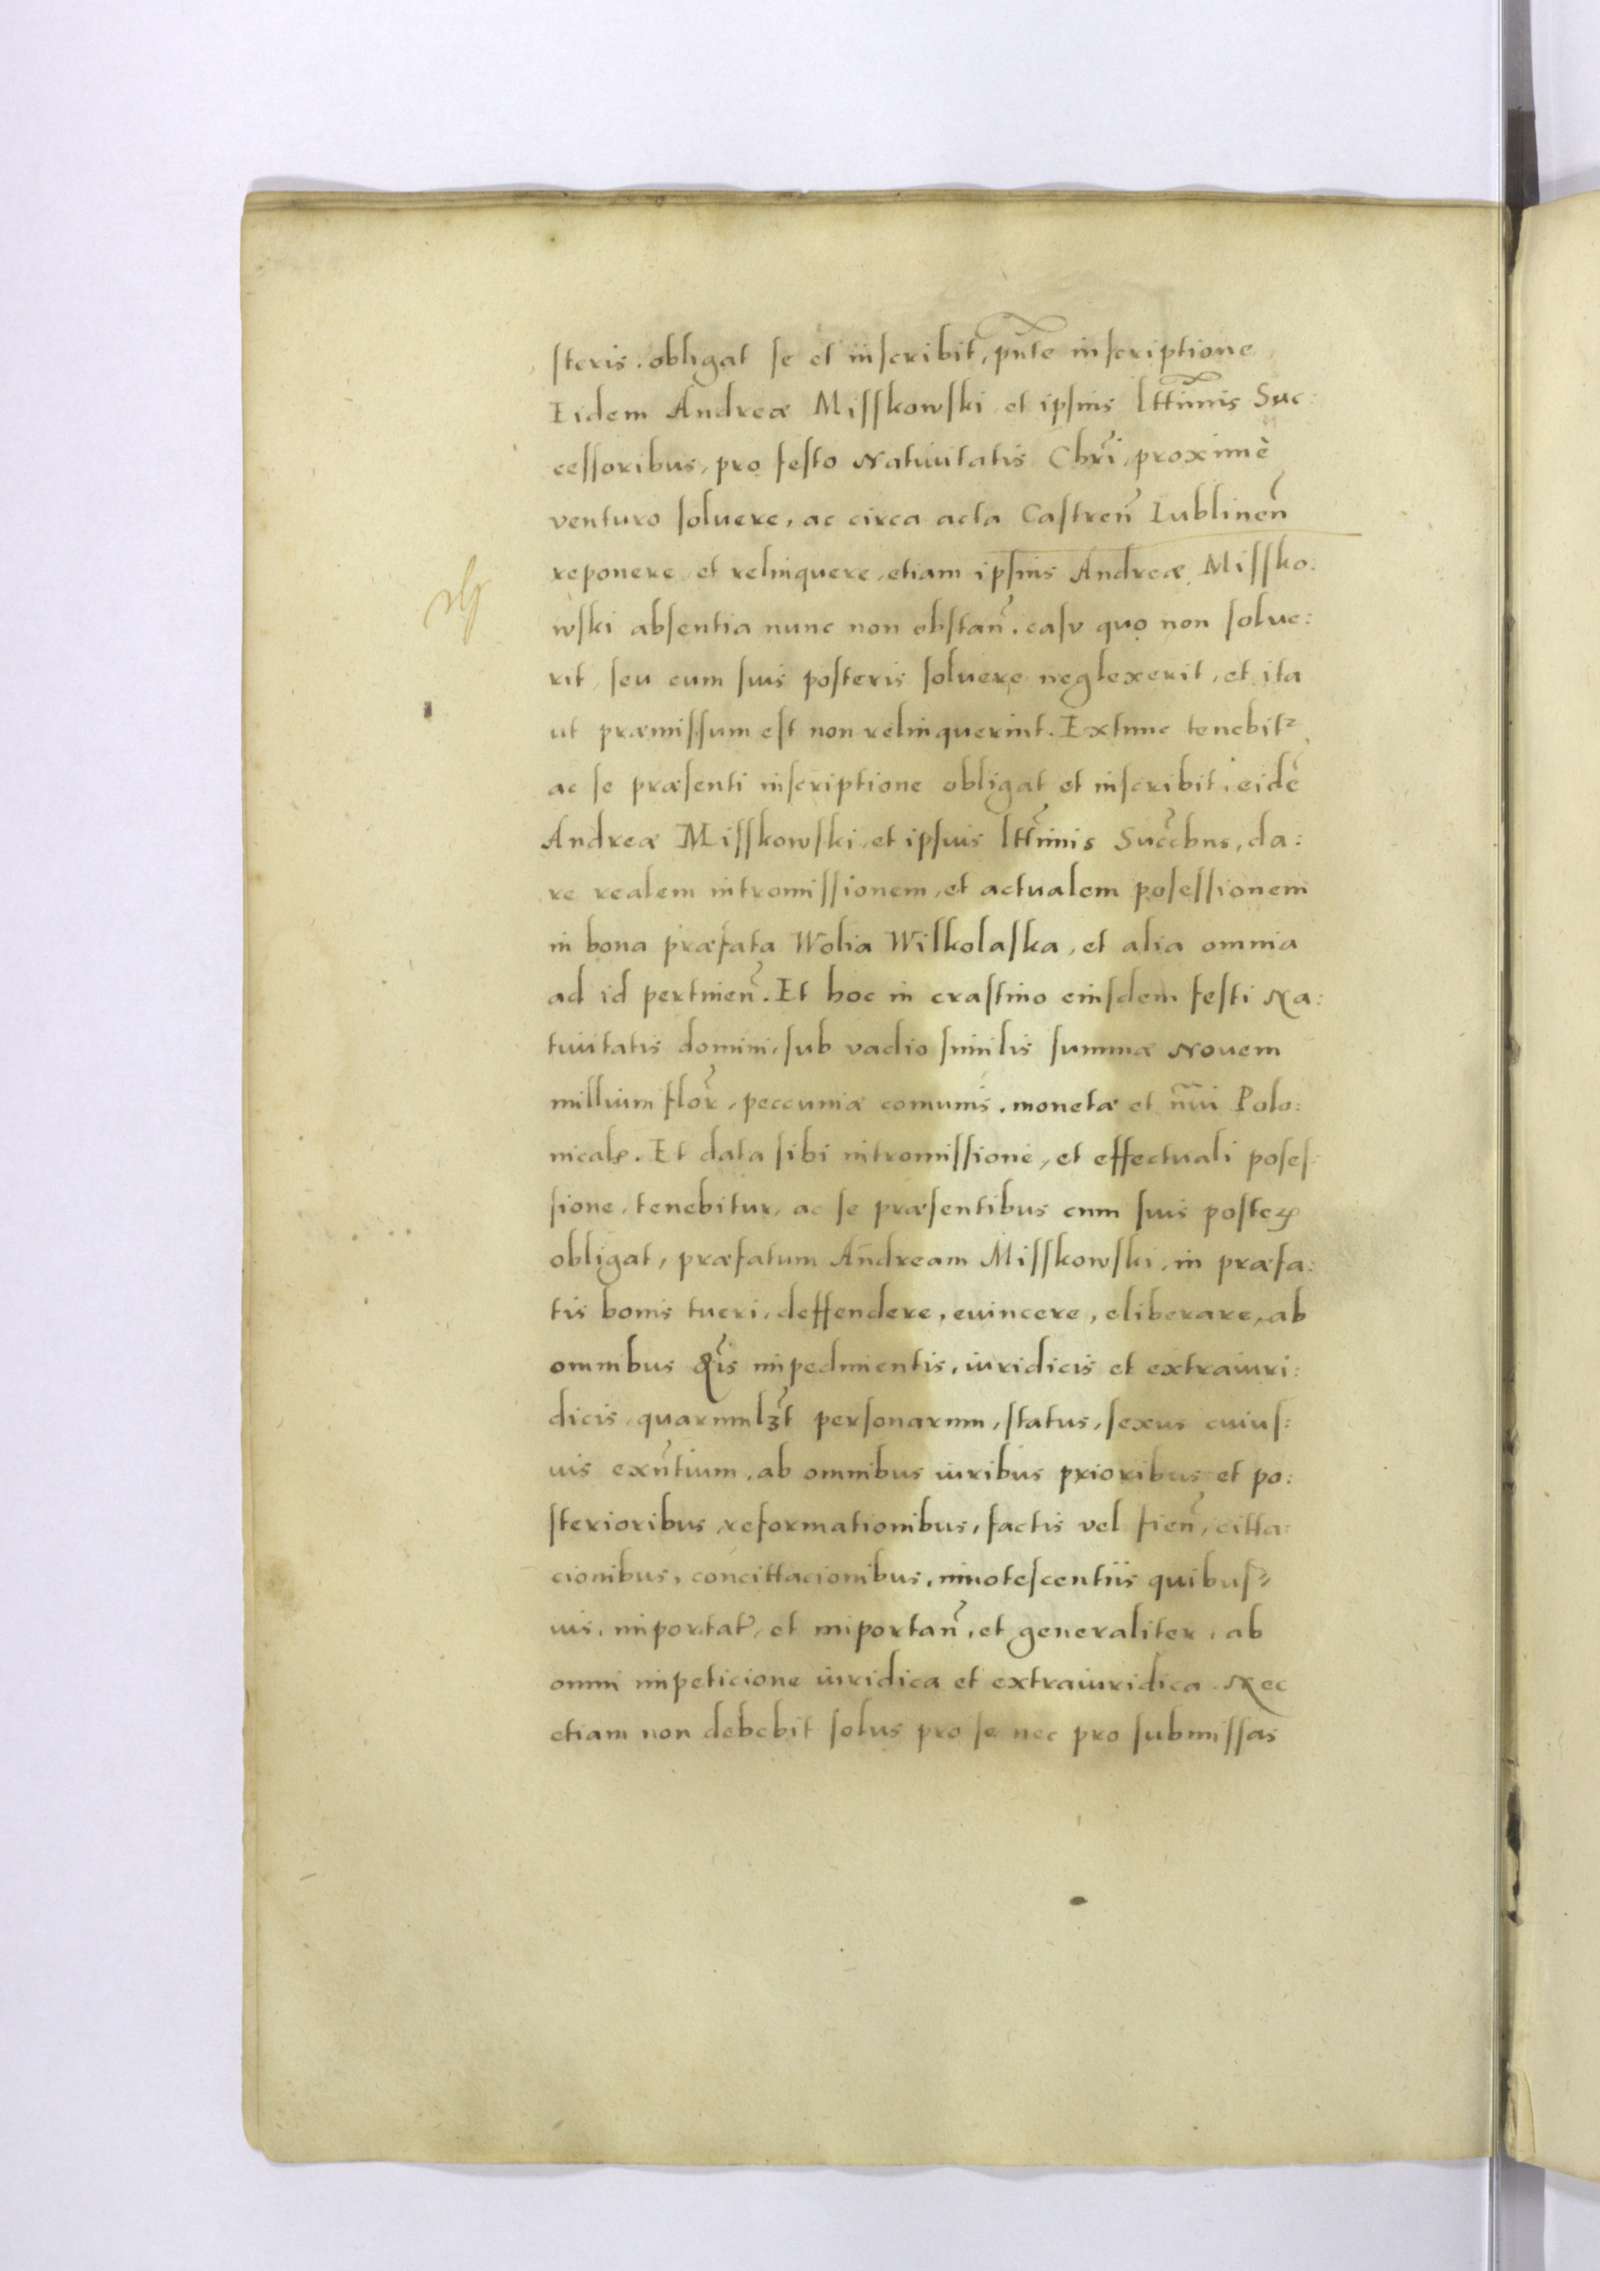 steris. obligat se et inscribit, pñte inscriptione
Eidem Andreæ Misskowski et ipsius lttimis Suc:
cessoribus, pro festo Natiuitatis Chri, proximè
venturo soluere, ac circa acta Castreñ Lublineñ
reponere, et relinquere, etiam ipsius Andreæ Missko:
wski absentia nunc non obstañ. casv quo non solue:
rit, seu cum suis posteris soluere neglexerit, et ita
ut præmissum est non relinquerint. Extunc tenebit᷑
ac se præsenti inscriptione obligat et inscribit, eidē
Andreæ Misskowski, et ipsius lttimis Succbus, da:
re realem intromissionem, et actualem posessionem
in bona præfata Wolia Wilkolaska, et alia omnia
ad id pertineñ. Et hoc in crastino eiusdem festi Na:
tiuitatis domini, sub vadio similis summæ Nouem
millium flor, peccuniæ comunis, monetæ et nr̃i Polo:
nicalꝭ. Et data sibi intromissione, et effectuali poses:
sione, tenebitur, ac se præsentibus cum suis posteꝝ
obligat, præfatum Andream Misskowski, in præfa:
tis bonis tueri, deffendere, euincere, eliberare, ab
omnibus Qis impedimentis, iuridicis et extraiuri:
dicis, quarumlꝫt personarum, status, sexus cuius:
uis exñtium, ab omnibus iuribus prioribus et po:
sterioribus reformationibus, factis vel fieñ, citta:
cionibus, concittacionibus, innotescentiis quibus=
uis, importat, et importañ, et generaliter, ab
omni impeticione iuridica et extraiuridica. Nec
etiam non debebit solus pro se nec pro submissas